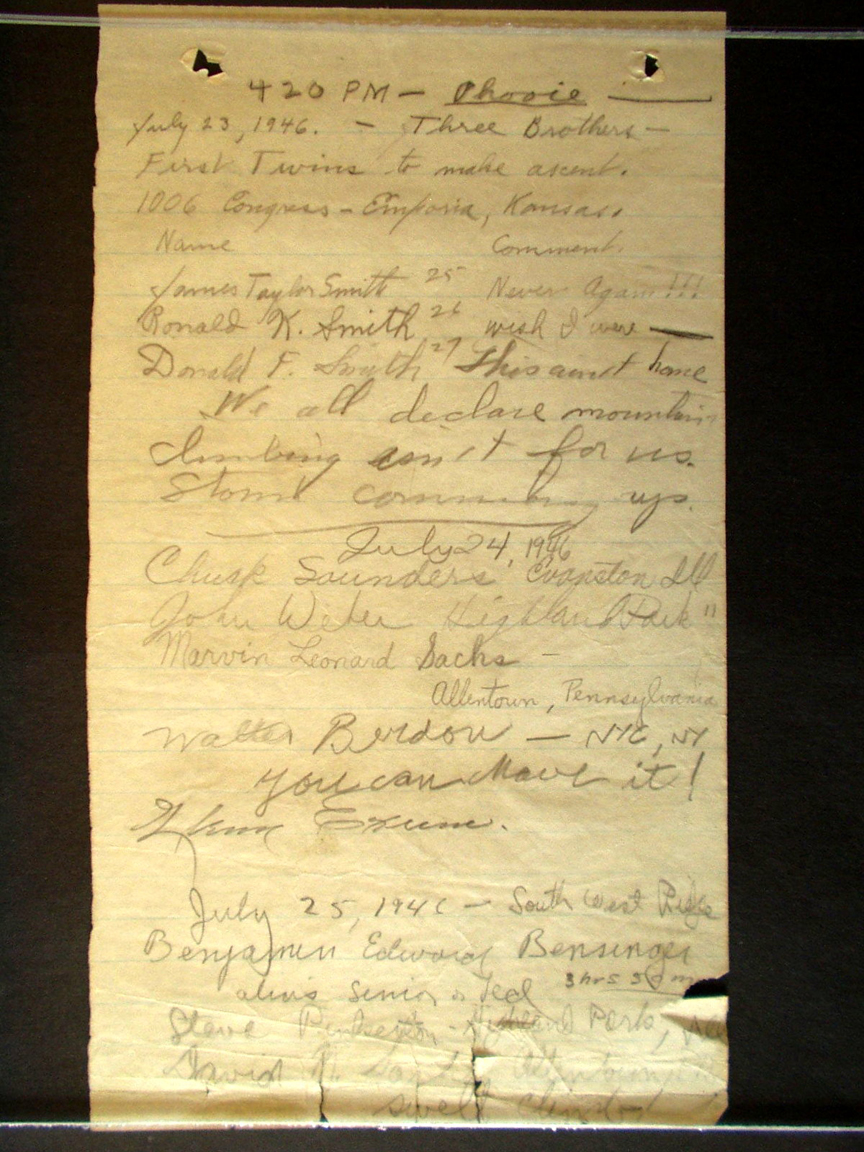 420 PM — Phooie
July 23, 1946. — Three Brothers —
First Twins to make ascent.
1006 Congress - Emporia, Kansas.
Name Comment.
James Taylor Smith 25 Never Again!!!
Ronald K. Smith 26 wish I were —
Donald F. Smith 27 This aint home
We all declare mountain
climbing isn't for us.
Storm comming up.
July 24, 1946
Chuck Saunders Evanston Ill
John Weber Highland Park "
Marvin Leonard Sachs —
Allentown, Pennsylvania
Walter Berdon — NYC, NY
You can have it!
Glenn Exum.
July 25, 1946 — South West Ridge
Benjamin Edward Bensinger
alias Senior or Ted 3 hrs
Steve Highland Park,
David
swell climb!